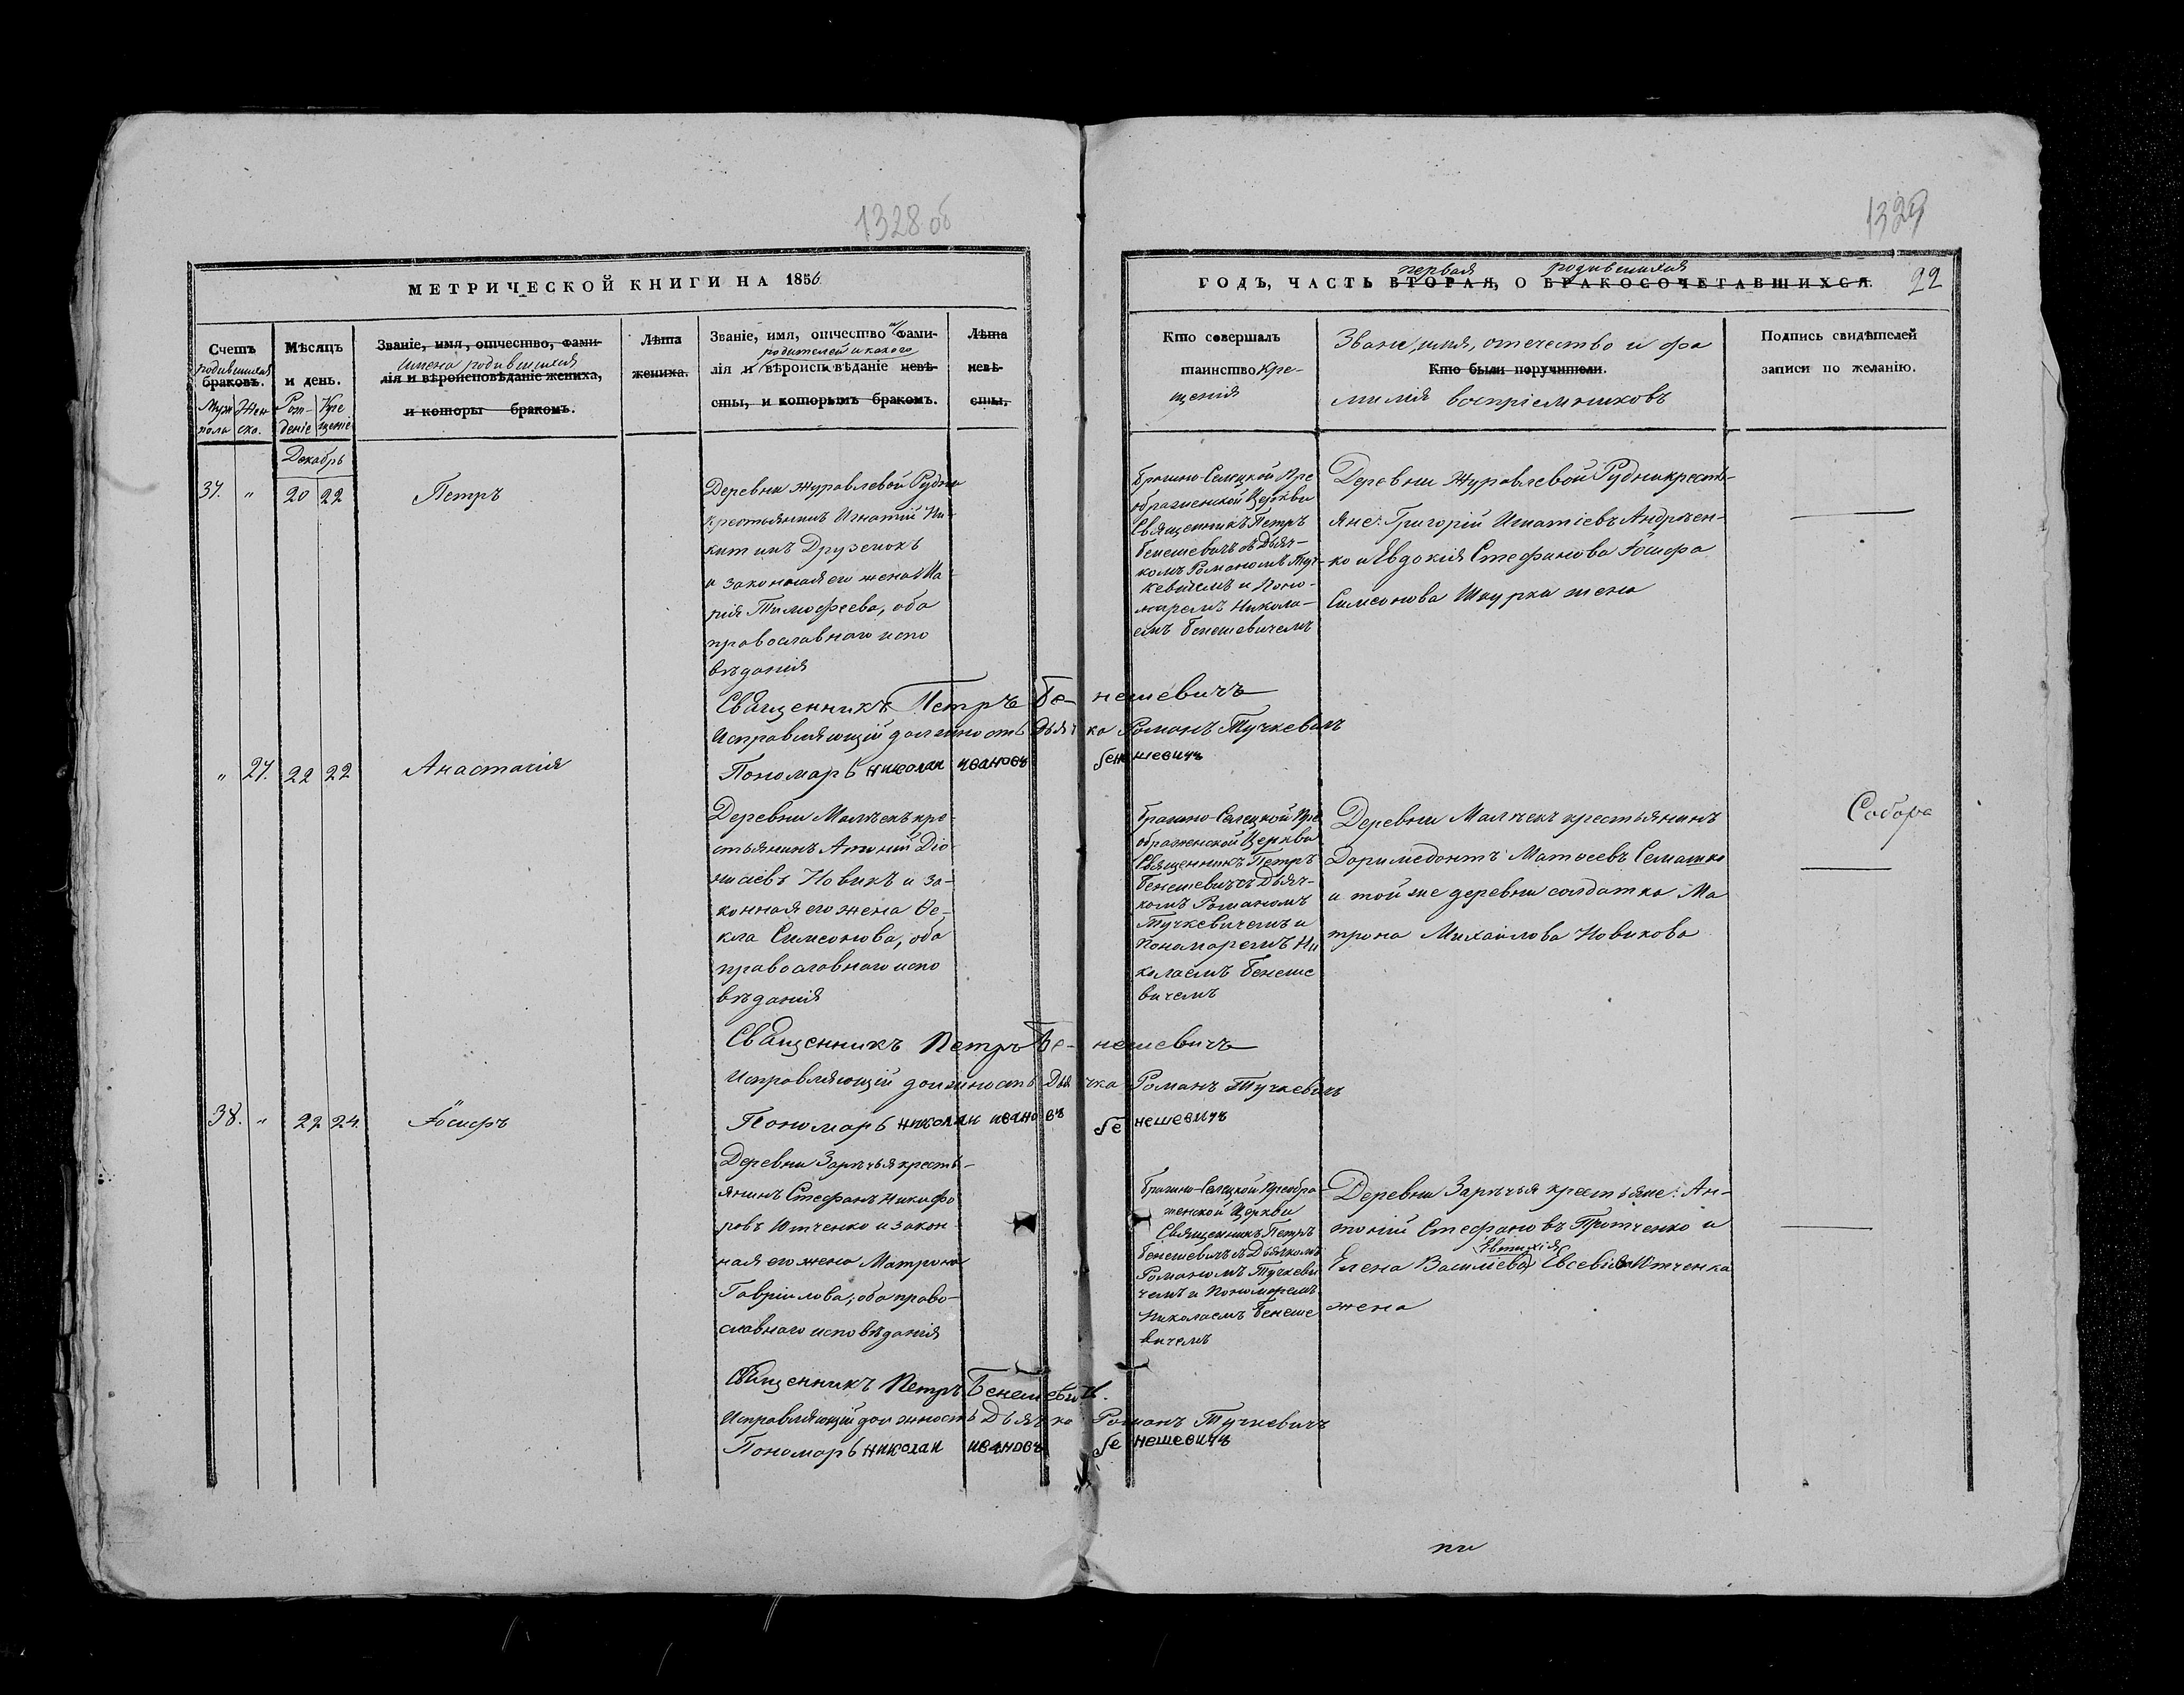 1328 об
МЕТРИЧЕСКОЙ КНИГИ НА 1856
Счетъ
родившихся
браковъ.
Муж Жен
пола ска.
Мѣсяцъ
и день.
Рож- Кре
деніе щеніе
Званіе, имя, отчество, фами-
имена родившихся
лія и вѣроисповѣданіе жениха,
и которы бракомъ.
Лѣта
жениха.
Званіе, имя, отчество и фами-
родителей и какого
лія и вѣроиспвѣданіе невѣ-
сты, и которымъ бракомъ.
Лѣта
невѣ-
сты.
Декабрь
37. " 20 22 Петръ
Деревни Журавлевой Рудни
крестьянинъ Игнатій Ни-
китинъ Друзенокъ
и законная его жена Ма-
рія Тимофеева, оба
православнаго испо
вѣданія
Священникъ Петръ Бе- нешевичъ
Исправляющій должность Дьячка Романъ Тучкевичъ
Пономарь николаи ивановъ бенешевичъ
" 27. 22 22 Анастасія
Деревни Малѣекъ кре-
стьянинъ Антоній
Новикъ и за-
конная его жена Ѳе-
кла Симеонова, оба
православнаго испо
вѣданія
Священникъ Петръ Бе- нешевичъ
Исправляющій должность Дьячка Романъ Тучкевичъ
Пономарь николаи ивановъ бенешевичъ
38. " 22 24. Іосифъ
Деревни Зарѣчья кресть-
янинъ Стефанъ Никифо
ровъ Ютченко и закон-
ная его жена Матрона
Гавріилова, оба право-
славнаго исповѣданія
Священникъ Петръ Бенешевичъ.
Исправляющій должность Дьячка Романъ Тучкевичъ
Пономарь николаи ивановъ бенешевичъ
1329
первая родившихся
ГОДЪ, ЧАСТЬ ВТОРАЯ, О БРАКОСОЧЕТАВШИХСЯ. 22
Кто совершалъ
таинство Кре-
щенія
Званіе, имя, отечество и фа
Кто были поручители.
милія воспріемниковъ
Подпись свидѣтелей
записи по желанію.
Брагино-Селецкой Пре
ображенской Церкви
Священникъ Петръ
Бенешевичъ съ Дьяч-
комъ Романомъ Туч-
кевичемъ и Поно-
маремъ Никола-
емъ Бенешевичемъ
Деревни Журавлевой Рудни кресть-
яне: Григорій Игнатіевъ Андреен-
ко и Евдокія Стефанова Іосифа
Симеонова Шкурка жена
Брагино-Селецкой Пре
ображенской Церкви
Священникъ Петръ
Бенешевичъ съ Дьяч-
комъ Романомъ
Тучкевичемъ и
Пономаремъ Ни
колаемъ Бенеше
вичемъ
Деревни Малѣекъ крестьянинъ
Доримедонтъ Матѳеевъ Семашко
и той же деревни солдатка Ма
трона Михаилова Новикова
Собора
Брагино-Селецкой Преобра-
женской Церкви
Священникъ Петръ
Бенешевичъ съ Дьячкомъ
Романомъ Тучкеви
чемъ и Пономаремъ
Николаемъ Бенеше
вичемъ
Деревни Зарѣчья крестьяне: Ан-
тоній Стефановъ Протченко и
Евтихія
Елена Василіева Евсевіева Ютченка
жена